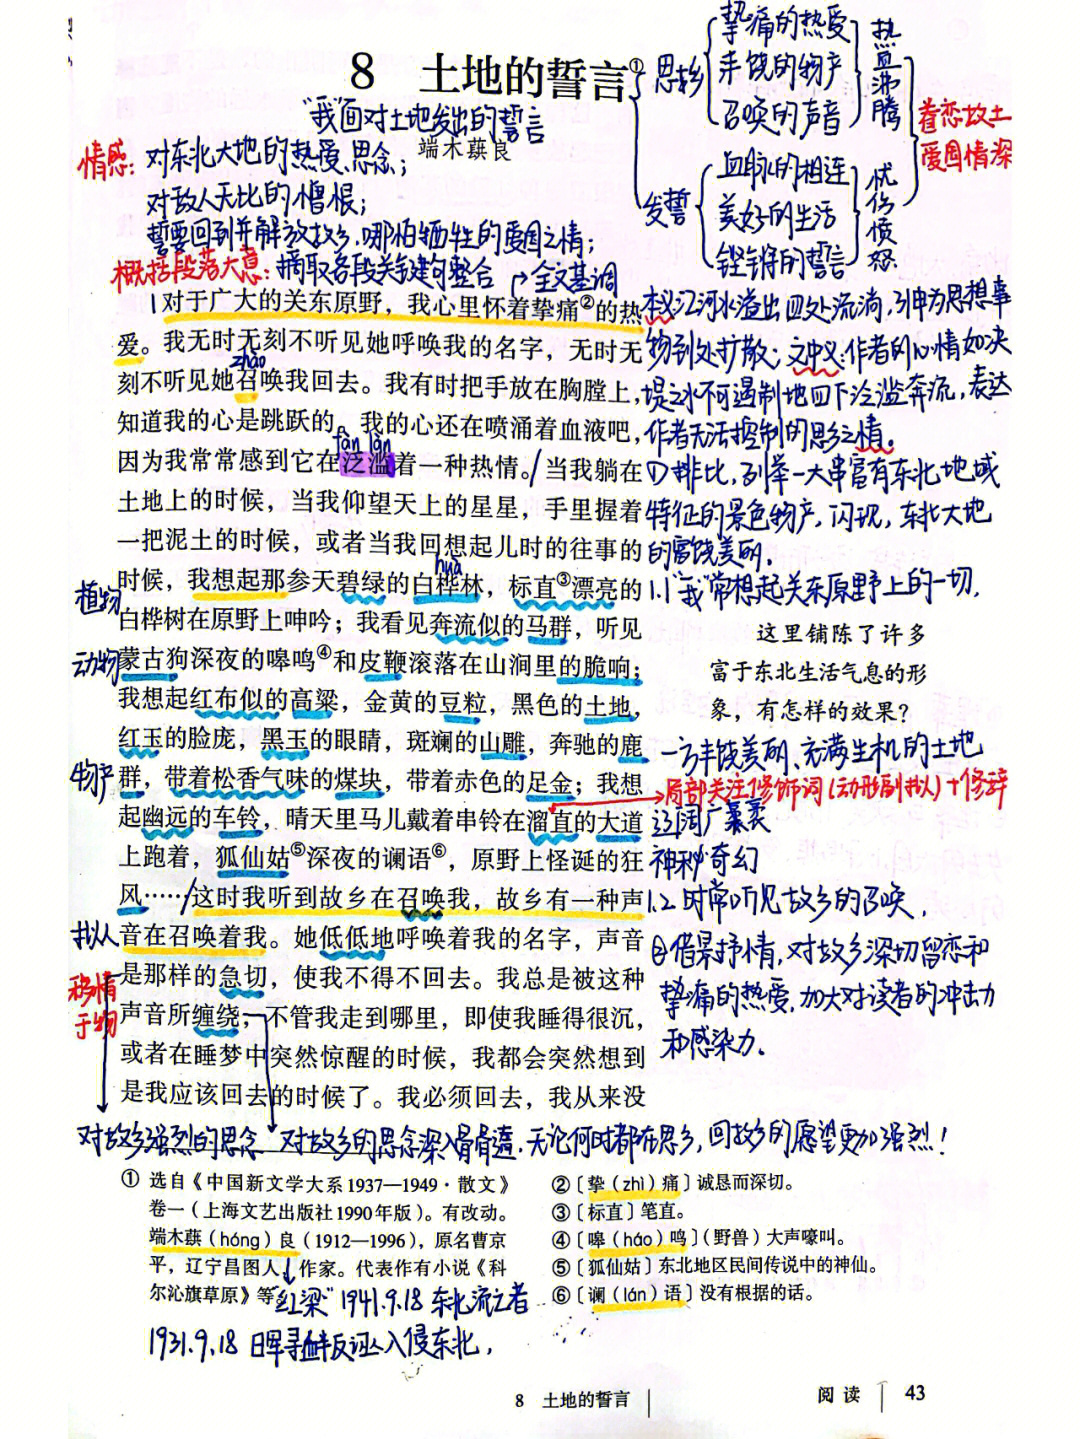 8 土地的誓言①
"我"面对土地发出的誓言
端木蕻良
思乡
挚痛的热爱
丰饶的物产
召唤的声音
热血沸腾
发誓
血脉的相连
美好的生活
铿锵的誓言
忧伤愤怒
眷恋故土
爱国情深
情感：对东北大地的热爱、思念；
对敌人无比的憎恨；
誓要回到并解放故乡，哪怕牺牲的爱国之情；
概括段落大意：摘取各段关键句整合
全文基调
1对于广大的关东原野，我心里怀着挚痛②的热
爱。我无时无刻不听见她呼唤我的名字，无时无
zhào
刻不听见她召唤我回去。我有时把手放在胸膛上，
知道我的心是跳跃的。我的心还在喷涌着血液吧，
fàn làn
因为我常常感到它在泛滥着一种热情。/当我躺在
土地上的时候，当我仰望天上的星星，手里握着
一把泥土的时候，或者当我回想起儿时的往事的
huà
时候，我想起那参天碧绿的白桦林，标直③漂亮的
白桦树在原野上呻吟；我看见奔流似的马群，听见
蒙古狗深夜的嗥鸣④和皮鞭滚落在山涧里的脆响；
我想起红布似的高粱，金黄的豆粒，黑色的土地，
红玉的脸庞，黑玉的眼睛，斑斓的山雕，奔驰的鹿
群，带着松香气味的煤块，带着赤色的足金；我想
起幽远的车铃，晴天里马儿戴着串铃在溜直的大道
上跑着，狐仙姑⑤深夜的谰语⑥，原野上怪诞的狂
风……/这时我听到故乡在召唤我，故乡有一种声
音在召唤着我。她低低地呼唤着我的名字，声音
是那样的急切，使我不得不回去。我总是被这种
声音所缠绕，不管我走到哪里，即使我睡得很沉，
或者在睡梦中突然惊醒的时候，我都会突然想到
是我应该回去的时候了。我必须回去，我从来没
植物
动物
物产
拟人
移情
于物
本义江河水溢出四处流淌，引申为思想事
物到处扩散；文中义：作者的心情如决
堤之水不可遏制地四下泛滥奔流，表达
作者无法控制的思乡之情。
①排比，列举一大串富有东北地域
特征的景色物产，闪现，东北大地
的富饶美丽。
1.1"我"常想起关东原野上的一切，
这里铺陈了许多
富于东北生活气息的形
象，有怎样的效果？
丰饶美丽、充满生机的土地
局部关注修饰词（动形副拟）+修辞
辽阔广袤
神秘奇幻
1.2 时常听见故乡的召唤，
②借景抒情，对故乡深切留恋和
挚痛的热爱，加大对读者的冲击力
和感染力。
对故乡强烈的思念 对故乡的思念深入骨髓，无论何时都在思乡，回故乡的愿望更加强烈！
① 选自《中国新文学大系1937—1949·散文》
卷一（上海文艺出版社1990年版）。有改动。
端木蕻（hóng）良（1912—1996），原名曹京
平，辽宁昌图人，作家。代表作有小说《科
尔沁旗草原》等。
"红粱" 1941.9.18 东北流亡者
1931.9.18 日军寻衅反诬入侵东北，
②〔挚（zhì）痛〕诚恳而深切。
③〔标直〕笔直。
④〔嗥（háo）鸣〕（野兽）大声嚎叫。
⑤〔狐仙姑〕东北地区民间传说中的神仙。
⑥〔谰（lán）语〕没有根据的话。
8 土地的誓言
阅读 43